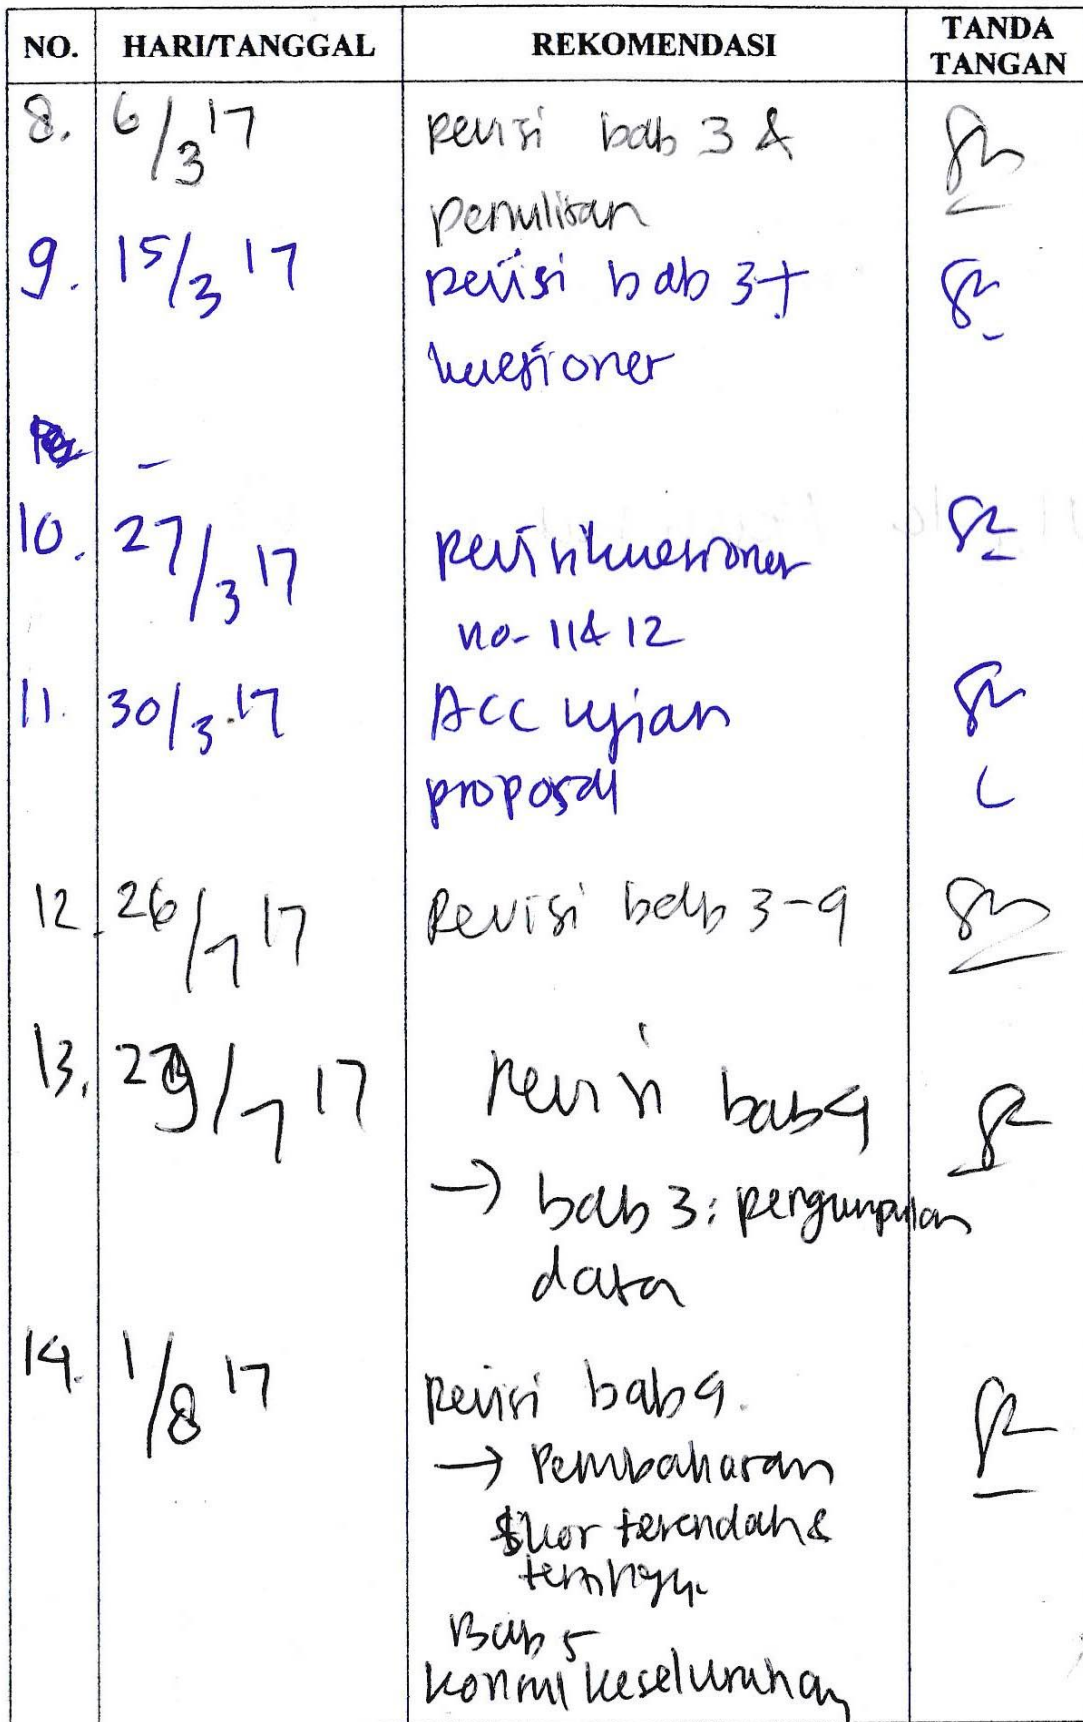 NO. HARI/TANGGAL REKOMENDASI TANDA TANGAN
8. 6/3 17 Revisi bab 3 &
penulisan
9. 15/3 17 Revisi bab 3 +
kuesioner
-
10. 27/3 17 Revisi kuesioner
no. 11 & 12
11. 30/3 17 ACC ujian
proposal
12. 26/7 17 Revisi bab 3-4
13. 29/7 17 Revisi bab 4
→ bab 3: pengumpulan
data
14. 1/8 17 Revisi bab 4.
→ Pembahasan
skor terendah &
tertinggi
Bab 5
keseluruhan